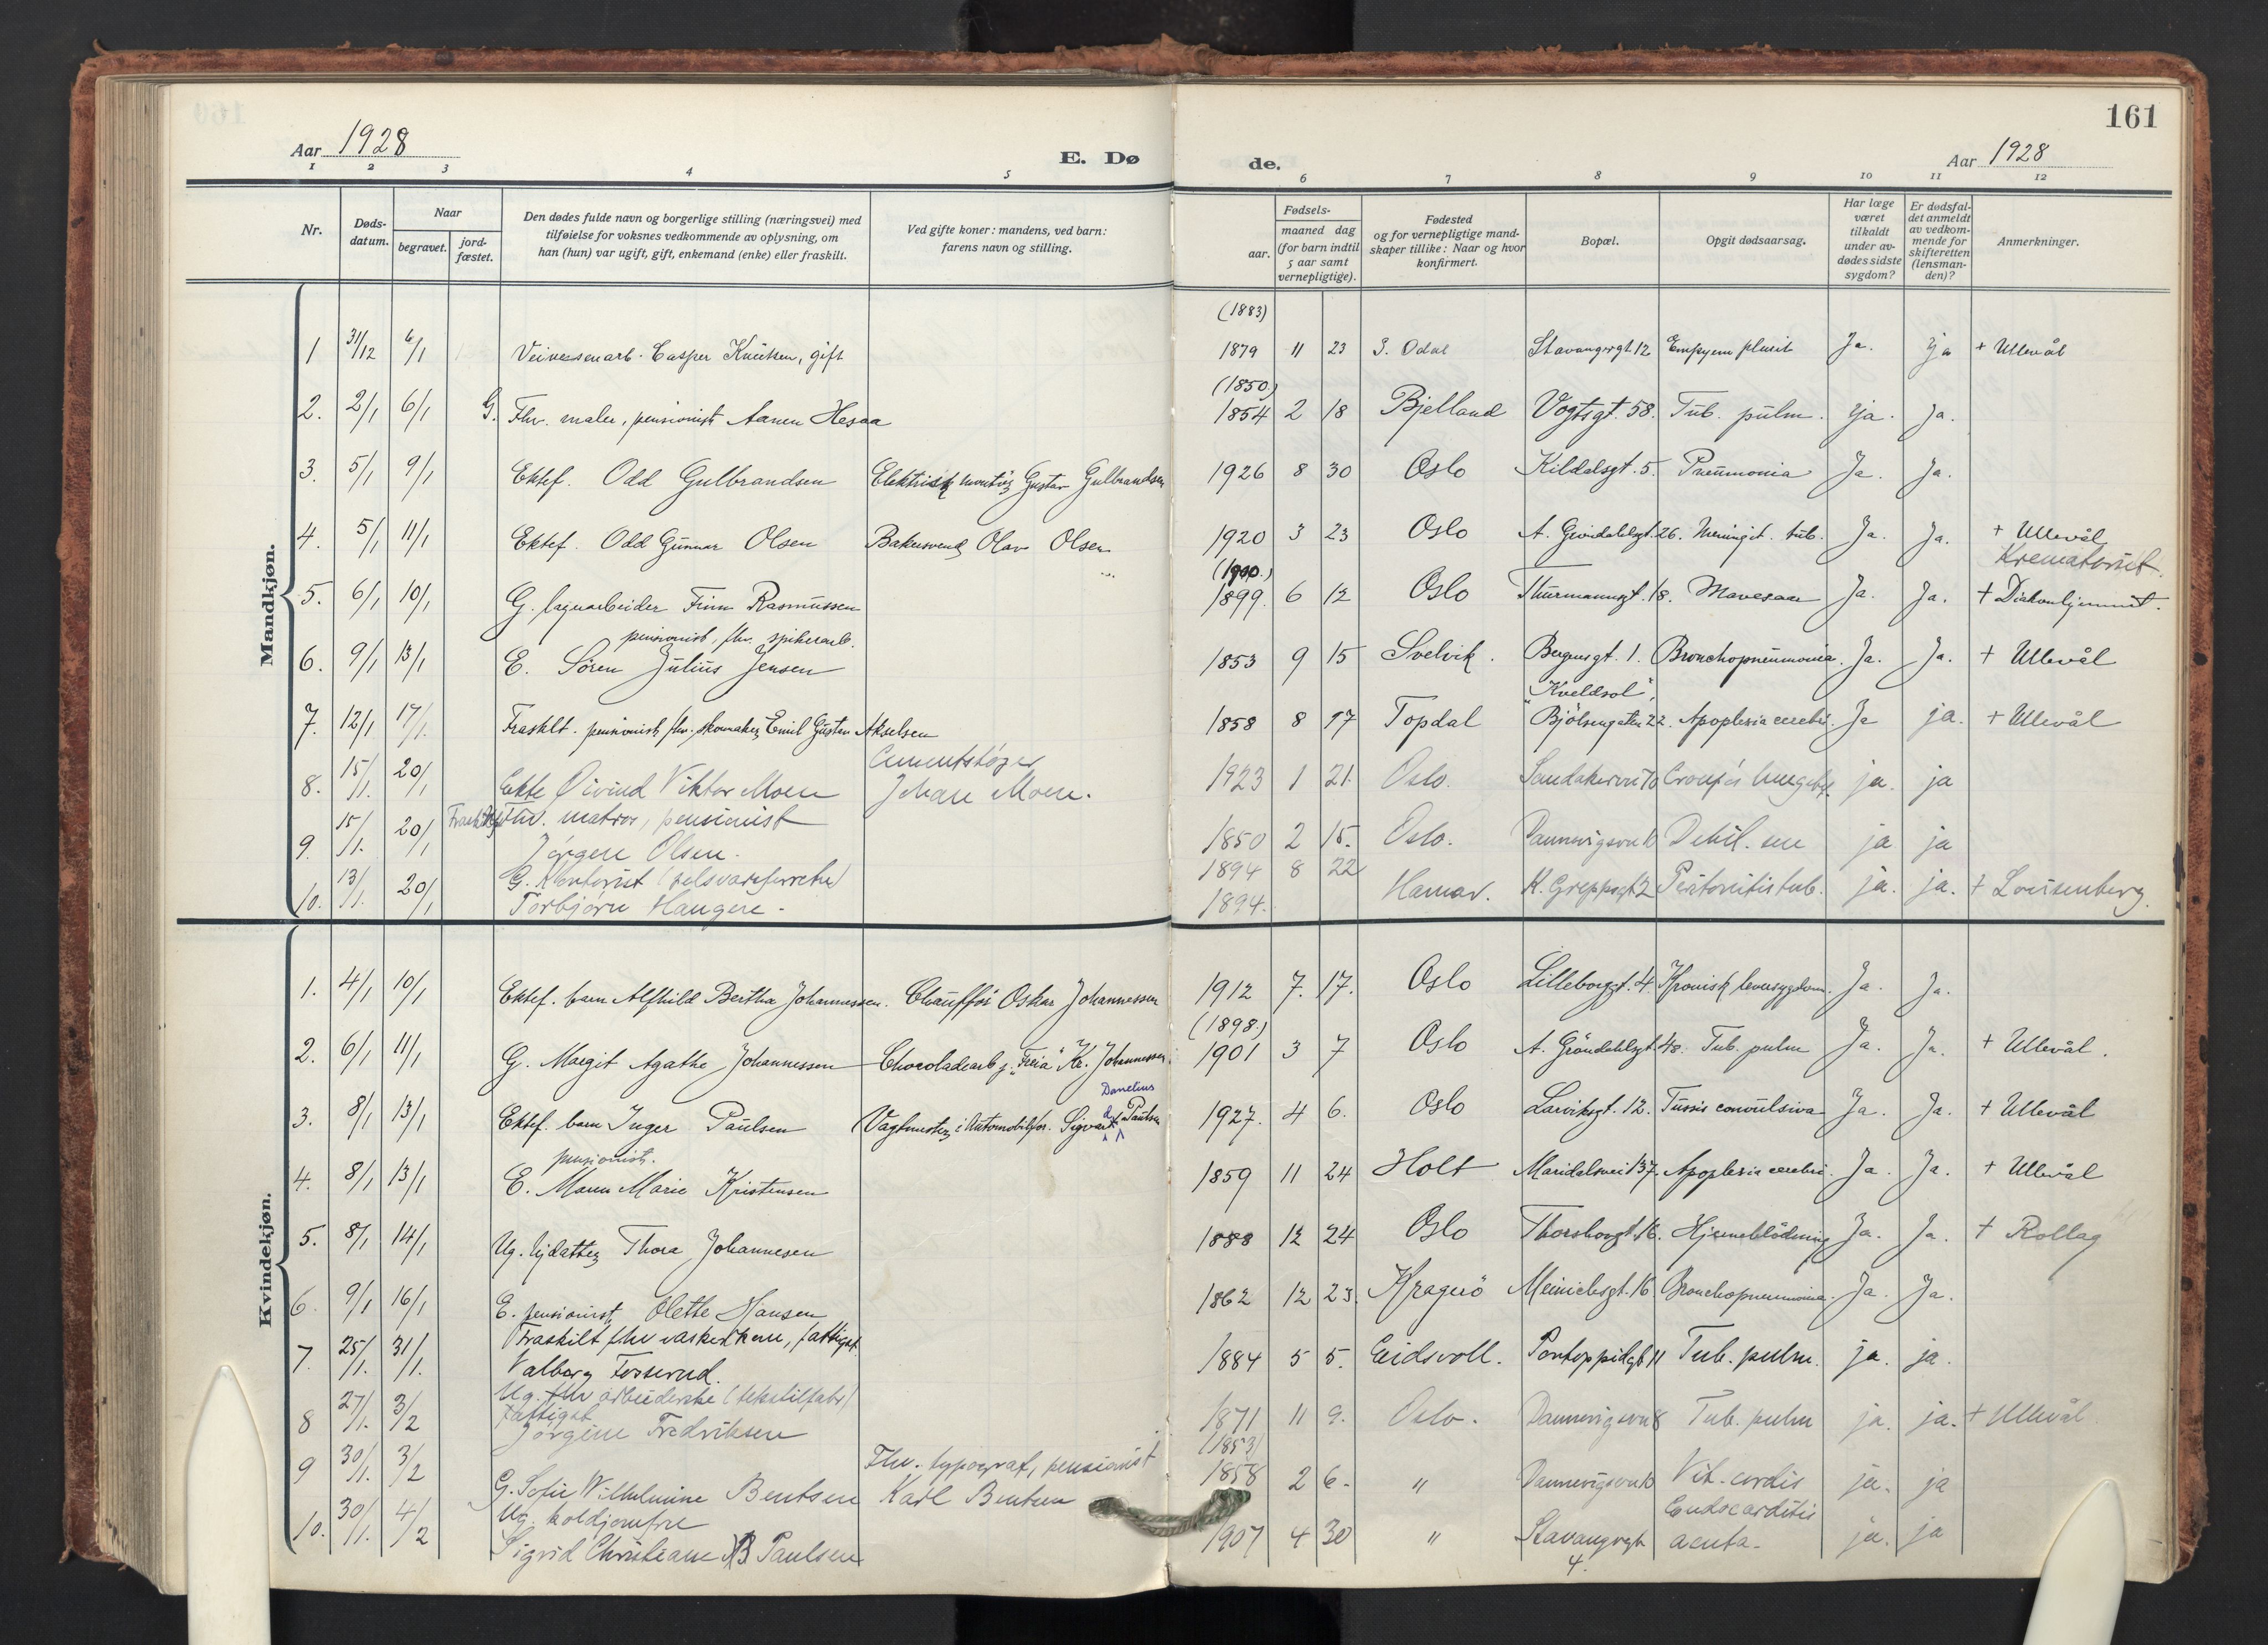 161
Aar 1928
E. Døde.
Aar 1928
1 2 3 4 5 6 7 8 9 10 11 12
Nr.
Døds-datum.
Naar
begravet.
jord-fæstet.
Den dødes fulde navn og borgerlige stilling (næringsvei) med
tilføielse for voksnes vedkommende av oplysning, om
han (hun) var ugift, gift, enkemand (enke) eller fraskilt.
Ved gifte koner: mandens, ved barn:
farens navn og stilling.
Fødsels-
aar.
maaned dag
(for barn indtil
5 aar samt
vernepligtige).
Fødested
og for vernepligtige mand-
skaper tillike: Naar og hvor
konfirmert.
Bopæl.
Opgit dødsaarsag.
Har læge
været
tilkaldt
under av-
dødes sidste
sygdom?
Er dødsfal-
det anmeldt
av vedkom-
mende for
skifteretten
(lensman-
den)?
Anmerkninger.
Mandkjøn.
(1883)
1 31/12 6/1 Veivesenarb. Casper Knutsen, gift 1879 11 23 S. Odal Stavangergt. 12 Empyem Ja. ja + Ullevål
(1850)
2. 2/1 6/1 G. Fhv. maler, pensionist Aanen Hesaa 1854 2 18 Bjelland Vogtsgt. 58. Tub. pulm. ja. Ja.
3. 5/1 9/1 Ektef. Odd Gulbrandsen Elektrisk montør Gustav Gulbrandsen 1926 8 30 Oslo Kildalsgt. 5. Pneumonia Ja. Ja.
4. 5/1 11/1 Ektef. Odd Gunnar Olsen Bakersvend Olav Olsen 1920 3 23 Oslo A. Grøndahlsgt. 26. Meningit. tub. Ja. Ja. + Ullevål
Krematoriet.
(1900.)
5. 6/1 10/1 G. lagerarbeider Finn Rasmussen 1899. 6 12 Oslo Thurmannsgt. 18. Mavesaar Ja. Ja. + Diakonhjemmet.
pensionist, fhv. spikerarb.
6. 9/1 13/1 E. Sören Julius Jensen 1853 9 15 Svelvik. Bergensgt. 1. Bronchopneumonia. Ja. Ja. + Ullevål
"Kveldsol",
7. 12/1 17/1. Fraskilt. pensionist, fhv. skomaker Emil Gustav Akselsen 1858 8 17 Topdal Bjölsengaten 22. Apoplexia cerebri. Ja ja. + Ullevål
Cementstøper
8. 15/1. 20/1 Ekte Øivind Viktor Moen Johan Moen. 1923 1 21. Oslo. Sandakerveien 70 ja. ja
Fraskilt Fhv. matros, pensionist
9. 15/1. 20/1 Jørgen Olsen. 1850 2 15. Oslo. Dannevigsvn 10 Debil. sen ja ja
G. Kontorist
1894 8 22
10. 13/1. 20/1 Torbjørn Haugen. 1894. Hamar. K. Greppsgt 2 Peritonitis tub. ja. ja. + Lovisenberg.
Kvindekjøn.
1. 4/1 10/1 Ektef. barn Alfhild Bertha Johannessen. Chauffør Oskar Johannessen 1912 7. 17. Oslo Lilleborggt. 4. Kronisk leversygdom. Ja. Ja.
(1898.)
2. 6/1 11/1 G. Margit Agathe Johannessen Chocoladearb. p. "Freia" Kr. Johannessen 1901 3 7 Oslo A. Gröndahlsgt. 48. Tub. pulm Ja. Ja. + Ullevål.
Danelius
3. 8/1 13/1 Ektef. barn Inger Paulsen Vagtmester i Automobilfor. Sigvard Paulsen 1927. 4 6. Oslo Larviksgt. 12. Tussis convulsiva Ja. Ja. + Ullevål
pensionist.
4. 8/1 13/1 E. Maren Marie Kristensen 1859 11 24 Holt Maridalsvei 137. Apoplexia cerebri. Ja. Ja. + Ullevål
5. 8/1 14/1 Ug. hjdatter Thora Johannesen 1888 12 24 Oslo Thorshovgt. 16. Hjerneblödning Ja. Ja. + Rollag
6. 9/1 16/1 E. pensionist, Olette Hansen 1862 12 23. Kragerö Meinichsgt. 16 Bronchopneumonia. Ja. Ja.
Fraskilt fhv vaskerikone, fattigst.
7. 25/1. 31/1. Valborg Fosserud. 1884 5 5. Eidsvoll. Pontoppidgt 11 Tub. pulm. ja. ja.
Ug. fhv arbeiderske (tekstilfabr)
fattigst
8 27/1. 3/2 Jørgine Fredriksen 1871 11 9. Oslo. Dannevigsvn 8 Tub. pulm ja. ja. + Ullevål.
(1853)
Fhv. typograf, pensionist
9 30/1. 3/2 G. Sofie Wilhelmine Bentsen Karl Bentsen 1858 2 6. " Dannevigsvn 10 Vit. cordis ja. ja
Ug. koldjomfru
Endocarditis
10. 30/1. 4/2 Sigrid Christiane B Paulsen 1907 4 30 " Stavangergt 4. acuta. ja. ja